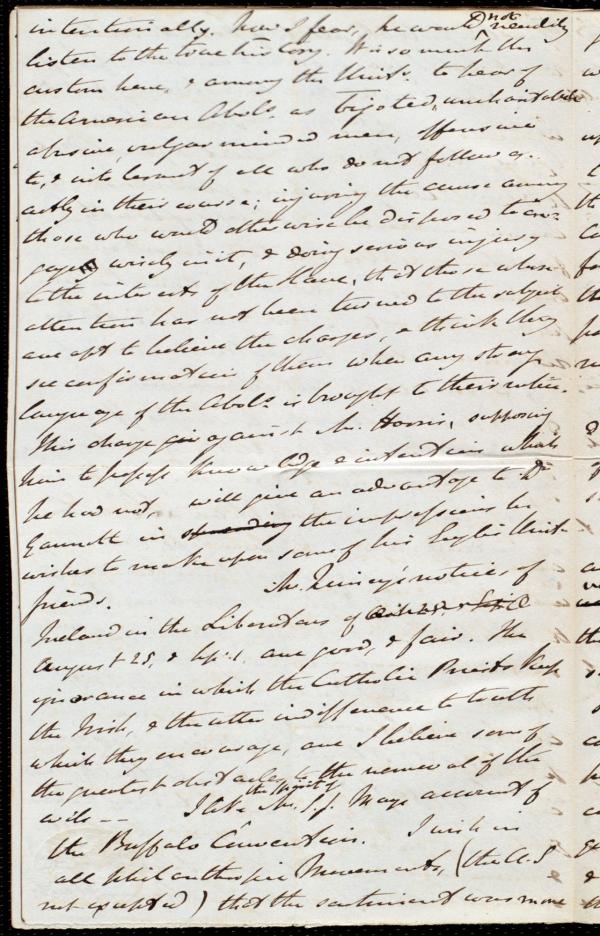 intentionally. Now I fear, he would not readily
listen to the true history. It is so much the
custom here, & among the Units. to hear of
the American Abols. as bigoted, uncharitable
abusive, vulgar minded men, offensive
to, & intolerant of all who do not follow ex-
actly in their course; injuring the cause among
those who would otherwise be disposed to en-
gage wisely in it, & doing serious injury
to the interests of the Slave, that those whose
attention has not been turned to the subject
are apt to believe the charges, & think they
see confirmation of them when any strong
language of the Abols. is brought to their notice.
This charge against Mr. Harris, supposing
him to possess knowledge & intentions which
he had not, will give an advantage to Dr.
Gannett in the impressions he
wishes to make upon some of his English Unit.
friends. Mr. Quincy's notices of
Ireland in the Liberators of
August 25, & Sept. 1. are good, & fair. The
ignorance in which the Catholic Priests keep
the Irish, & the utter indifference to truth
which they encourage, are I believe some of
the greatest obstacles to the removal of the
evils -- I like the Mr. S. J. Mays account of
the Buffalo Convention. I wish in
all philanthropic Movements, (the A.S
not excepted) that the sentiment was more